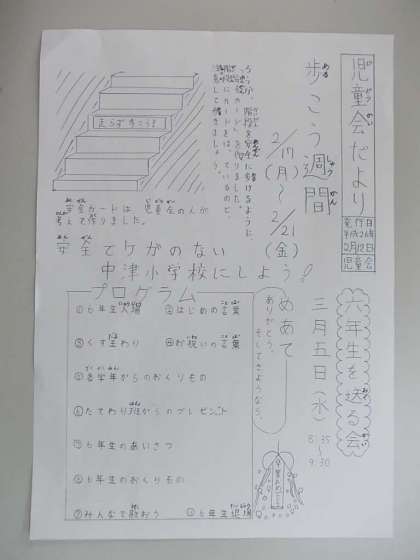 児童会だより
発行日
平成26年
2月12日
児童会
歩こう週間
2/17(月)〜2/21(金)
走らず歩こう!
安全カードは児童会の人が
考えて作りました。
安全でケガのない
中津小学校にしよう!
六年生を送る会
三月五日(水)
8:35〜9:30
めあて
ありがとう。そしてさようなら。
プログラム
①6年生入場
②はじめの言葉
③くす玉わり
④お祝いの言葉
⑤各学年からのおくりもの
⑥たてわり班からのプレゼント
⑦6年生のあいさつ
⑧6年生のおくりもの
⑨みんなで歌おう
⑩6年生退場